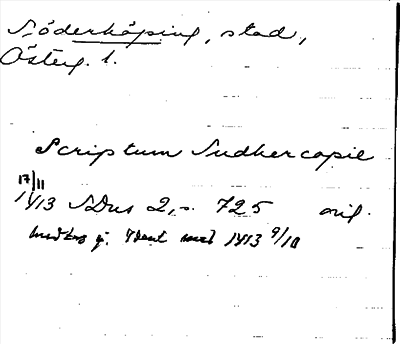 Söderköping, stad,
Österg. l.
Scriptum Sudhercopie
17/11
1413 SDns 2, s. 725 orig.
ej ident med 1413 9/10